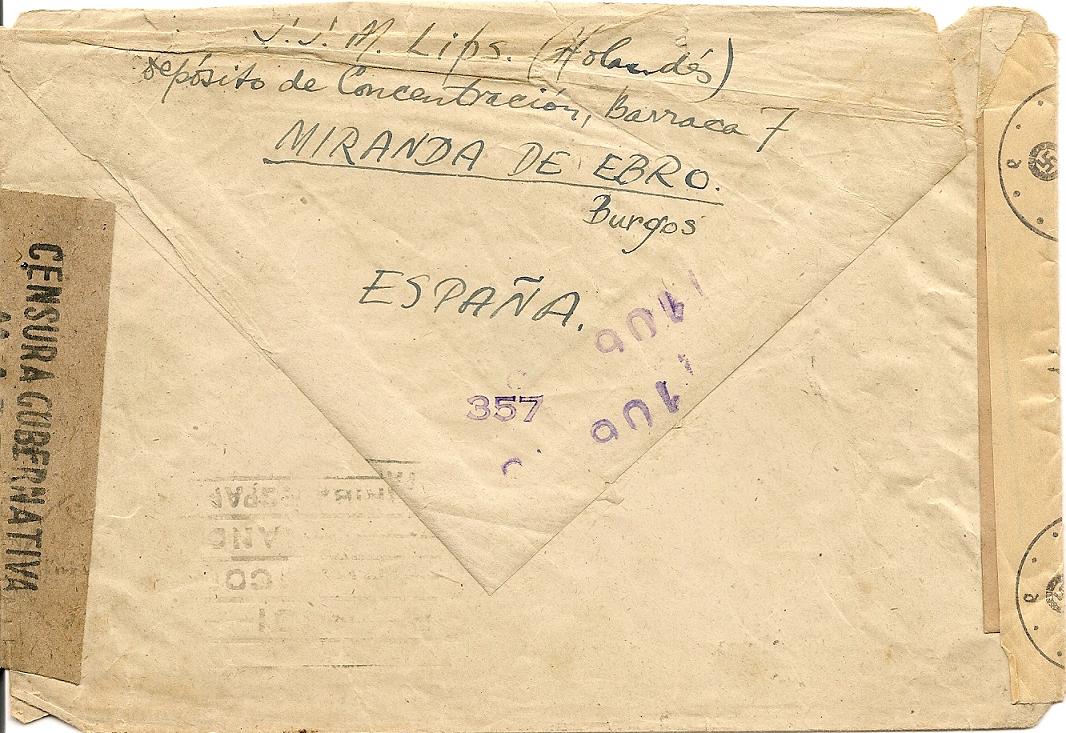 J. J. M. Lips. (Holandés)
Depósito de Concentración, Barraca 7
MIRANDA DE EBRO.
Burgos
ESPAÑA.
357
CENSURA GUBERNATIVA
e
e